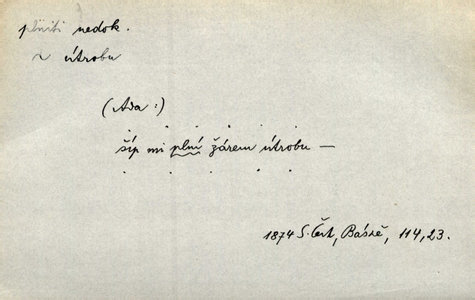 plniti nedok.
~ útrobu
(Ada:)
. . . . .
šíp mi plní žárem útrobu —
. . . . .
1874 S. Čech, Básně, 114,23.